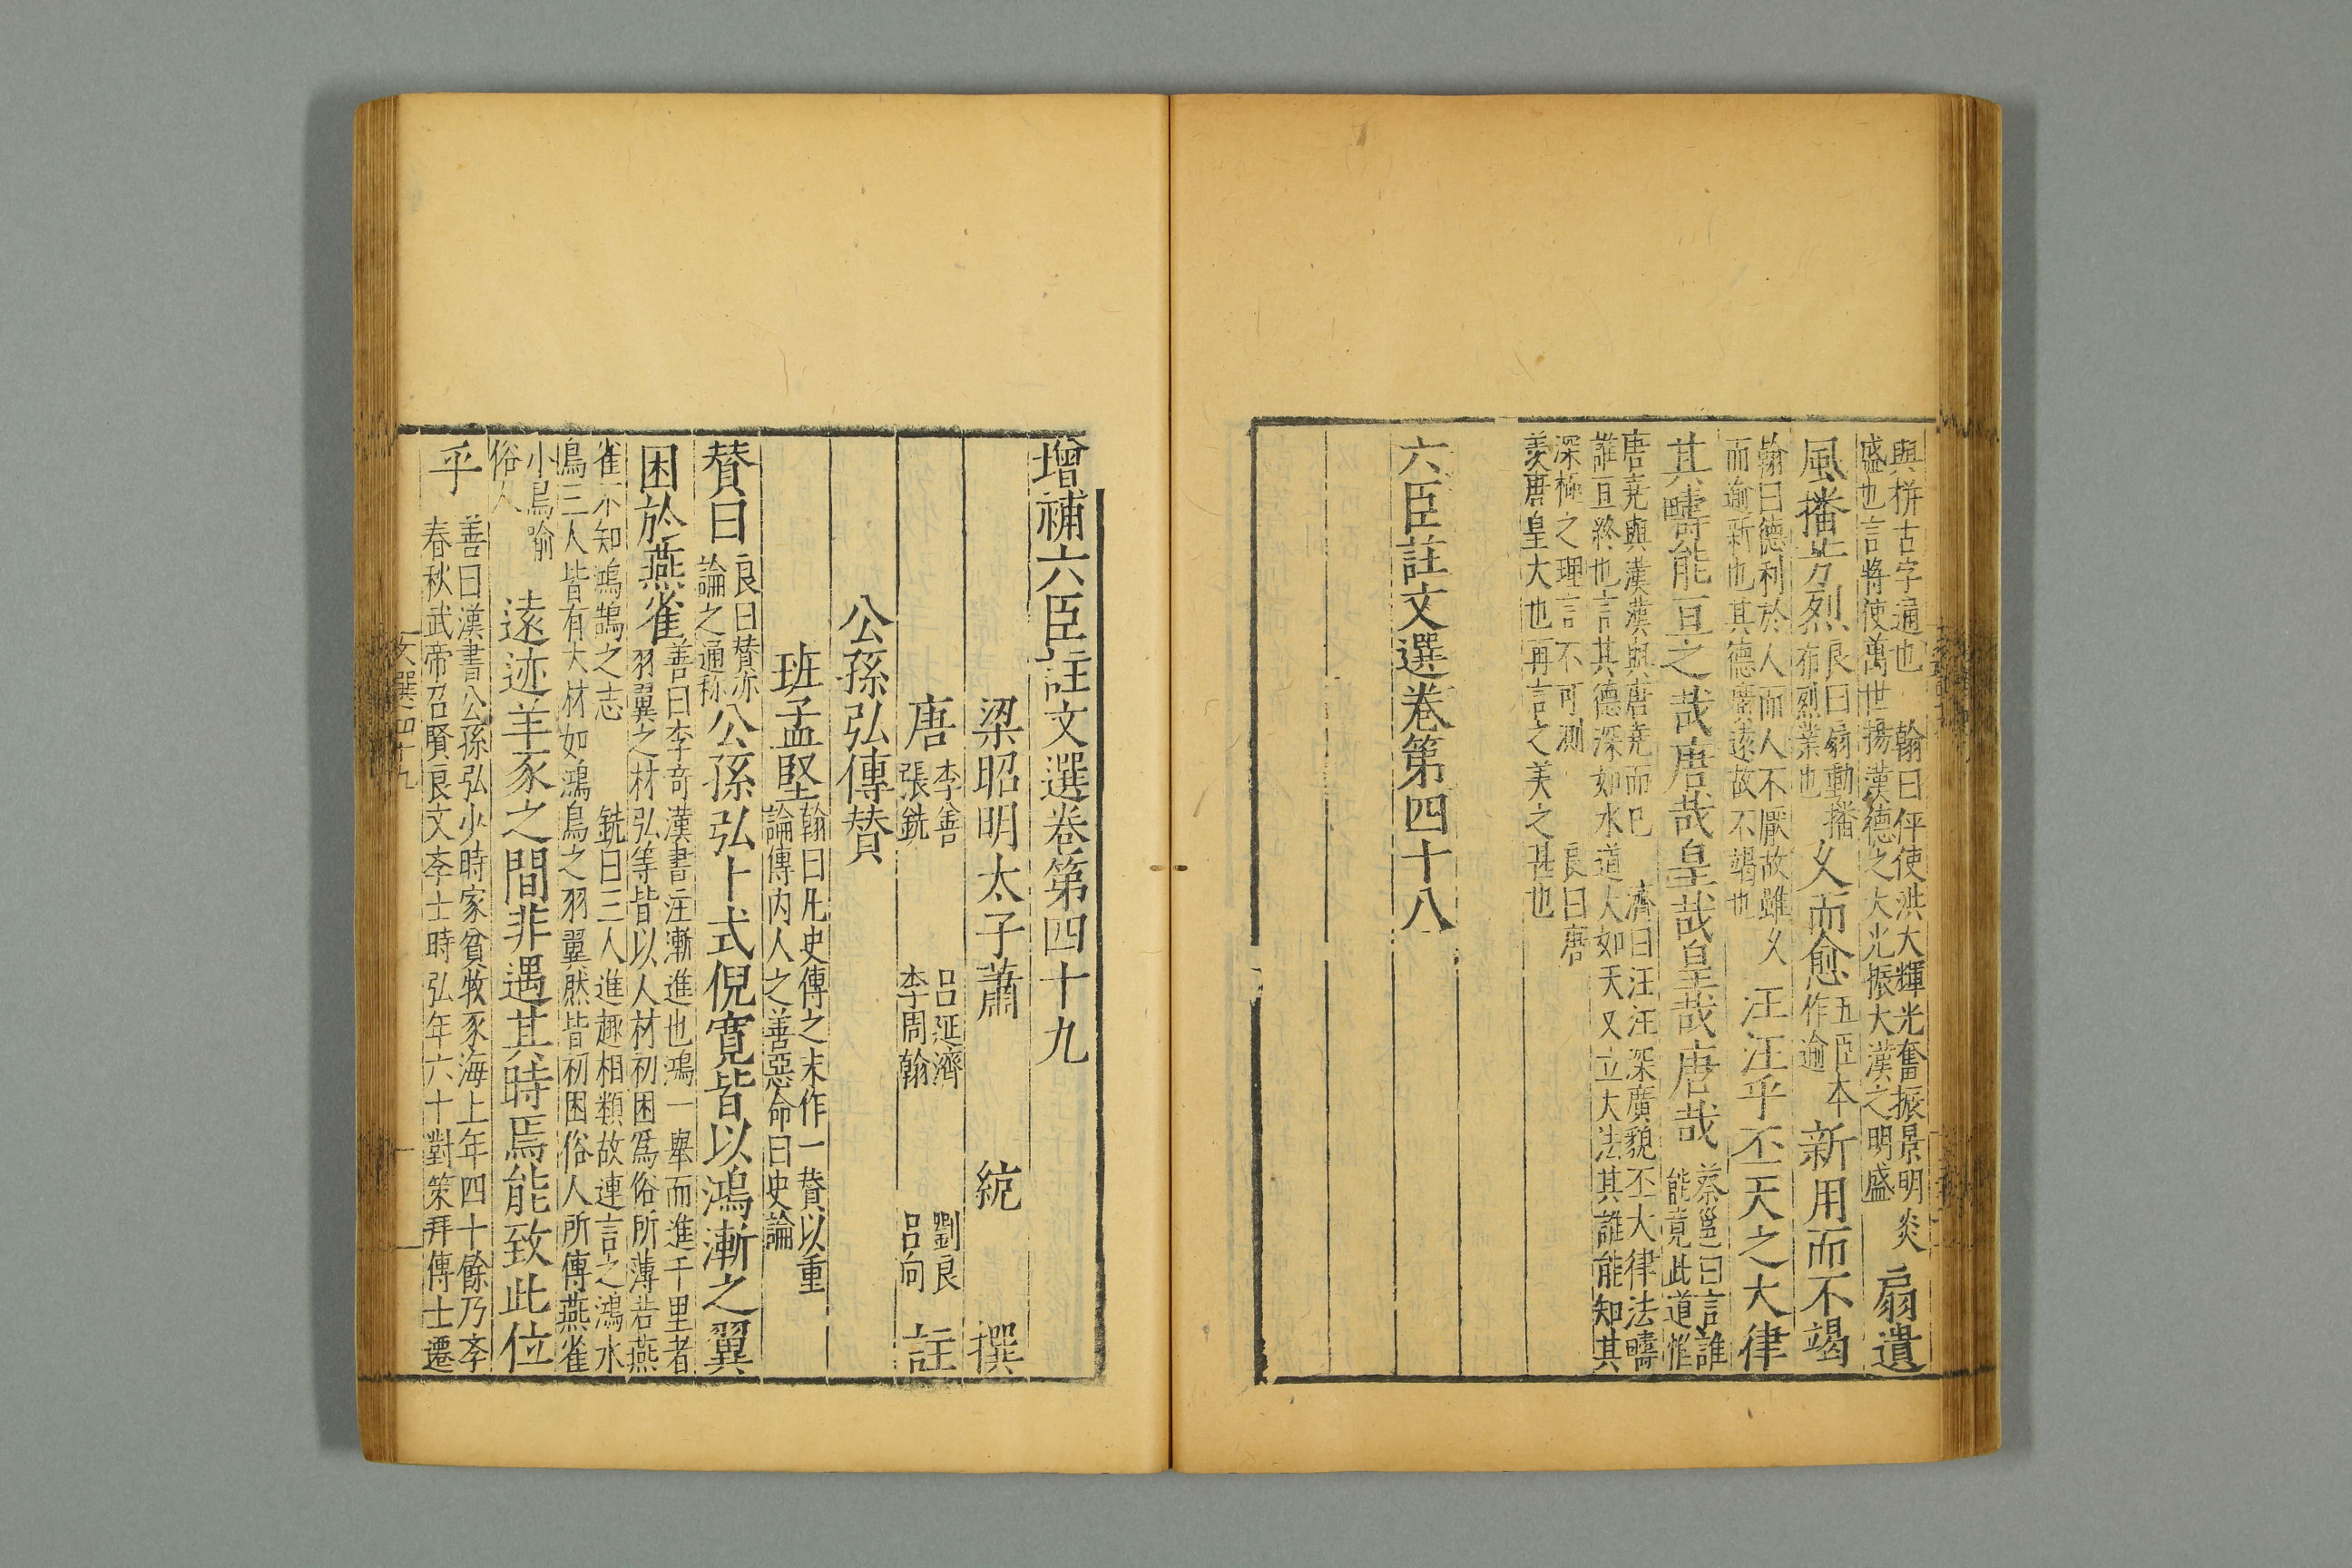 與拼古字通也　翰曰伻使洪大輝光奮振景明炎
盛也言將使萬世揚漢德之大光振大漢之明盛
扇遺
風播芳烈
良曰扇動播
布烈業也
久而愈
五臣本
作逾
新用而不竭
翰曰德利於人而人不厭故雖久
而逾新也其德廣遠故不竭也
汪汪乎丕天之大律
其疇能亘之哉唐哉皇哉皇哉唐哉
蔡邕曰言誰
能竟此道惟
唐堯與漢漢與唐堯而已　濟曰汪汪深廣貌丕大律法疇
誰亘終也言其德深如水道人如天又立大法其誰能知其
深極之理言不可測　良曰唐
美唐皇大也再言之美之甚也
六臣註文選卷第四十八
增補六臣註文選卷第四十九
梁昭明太子蕭　統　撰
唐
李善
張銑
呂延濟
李周翰
劉良
呂向
註
公孫弘傳贊
班孟堅
翰曰凡史傳之末作一贊以重
論傳內人之善惡命曰史論
贊曰
良曰贊亦
論之通称
公孫弘卜式倪寬皆以鴻漸之翼
困於燕雀
善曰李奇漢書注漸進也鴻一舉而進千里者
羽翼之材弘等皆以人材初困爲俗所薄若燕
雀不知鴻鵠之志　銑曰三人進趣相類故連言之鴻水
鳥三人皆有大材如鴻鳥之羽翼然皆初困俗人所傳燕雀
小鳥喻
俗人
遠迹羊豕之間非遇其時焉能致此位
乎
善曰漢書公孫弘少時家貧牧豕海上年四十餘乃李
春秋武帝召賢良文李士時弘年六十對策拜傳士遷
文選四十九
一